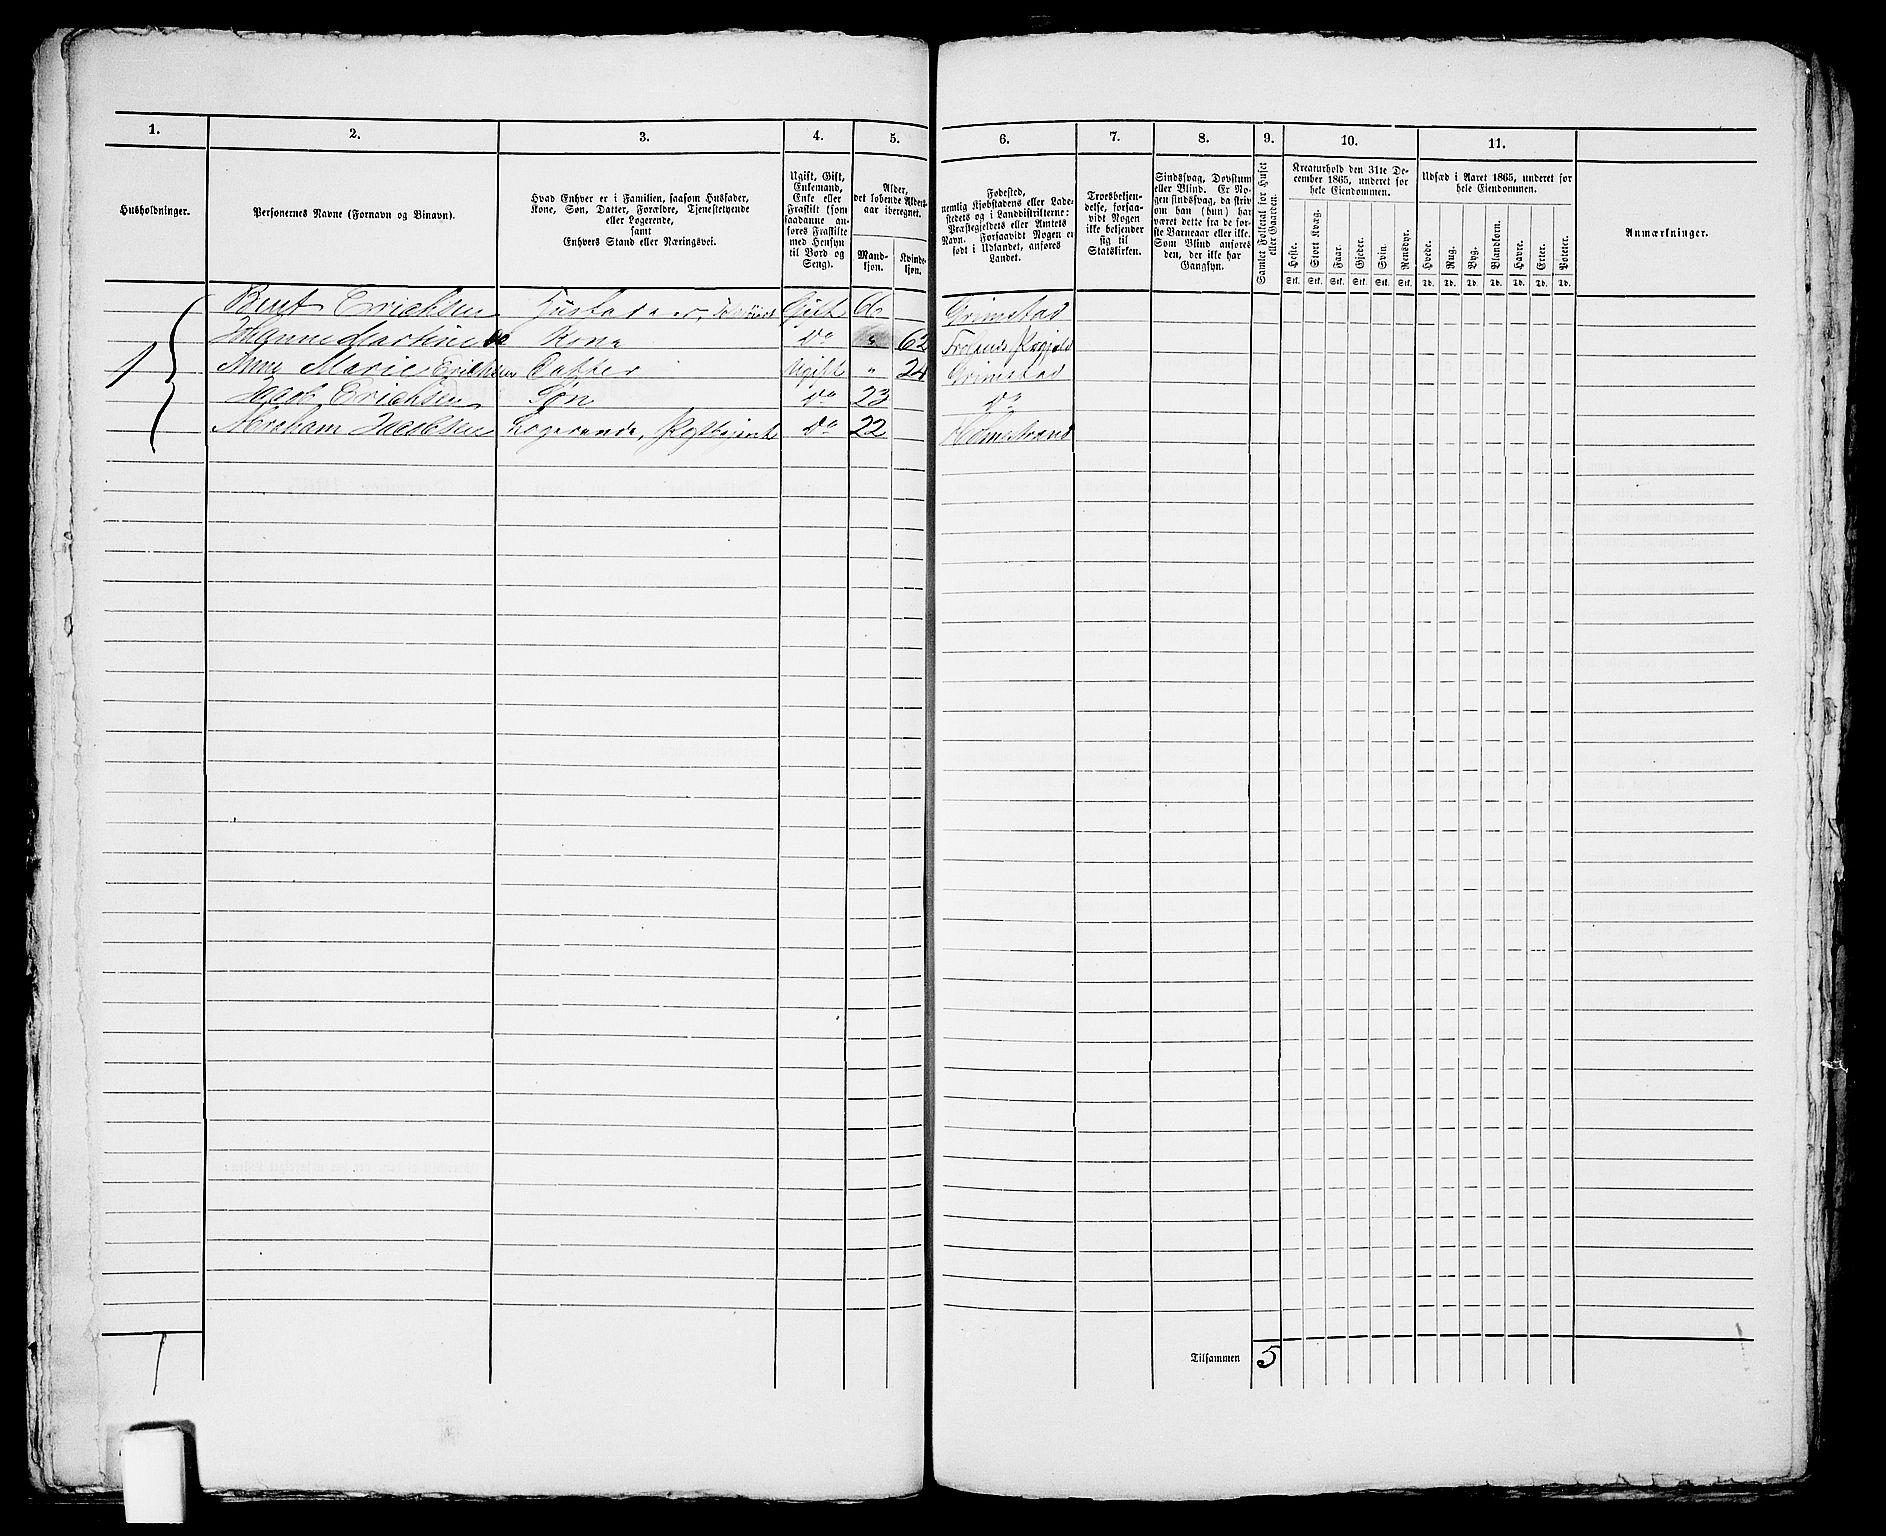 1. 2. 3. 4. 5. 6. 7. 8. 9. 10. 11.
Husholdninger.
Personernes Navne (Fornavn og Binavn).
Hvad Enhver er i Familien, saasom Husfader,
Kone, Søn, Datter, Forældre, Tjenestetyende
eller Logerende,
samt
Enhvers Stand eller Næringsvei.
Ugift, Gift,
Enkemand,
Enke eller
Fraskilt (som
saadanne an-
føres Fraskilte
med Hensyn
til Bord og
Seng).
Alder,
det løbende Alders-
aar iberegnet.
Mand-
kjøn.
Kvinde-
kjøn.
Fødested,
nemlig Kjøbstadens eller Lade-
stedets og i Landdistrikterne:
Præstegjeldets eller Amtets
Navn. Forsaavidt Nogen er
født i Udlandet, anføres
Landet.
Troesbekjen-
delse, forsaa-
vidt Nogen
ikke bekjender
sig til
Statskirken.
Sindssvag, Døvstum
eller Blind. Er No-
gen sindssvag, da skriv
om han (hun) har
været dette fra de før-
ste Barneaar eller ikke.
Som Blind anføres
den, der ikke har
Gangsyn.
Samlet Folketal for Huset
eller Gaarden.
Kreaturhold den 31te De-
cember 1865, underet for
hele Eiendommen.
Heste.
Stort Kvæg.
Faar.
Gjeder.
Svin.
Rensdyr.
Stk. Stk. Stk. Stk. Stk. Stk.
Udsæd i Aaret 1865, underet for
hele Eiendommen.
Hvede.
Rug.
Byg.
Blandkorn.
Havre.
Erter.
Poteter.
Td. Td. Td. Td. Td. Td. Td.
Anmærkninger.
Bent Erichsen Husfader, Gift 66 Grimstad
Johanne Martine Kone Do " 62 Frolands Prgjeld
1 Anne Marie Erichsen Datter Ugift " 24 Grimstad
Jacob Erichsen Søn Do 23 Do
Abraham Jacobsen Logerende, Do 22 Holmestrand
Tilsammen 5
1